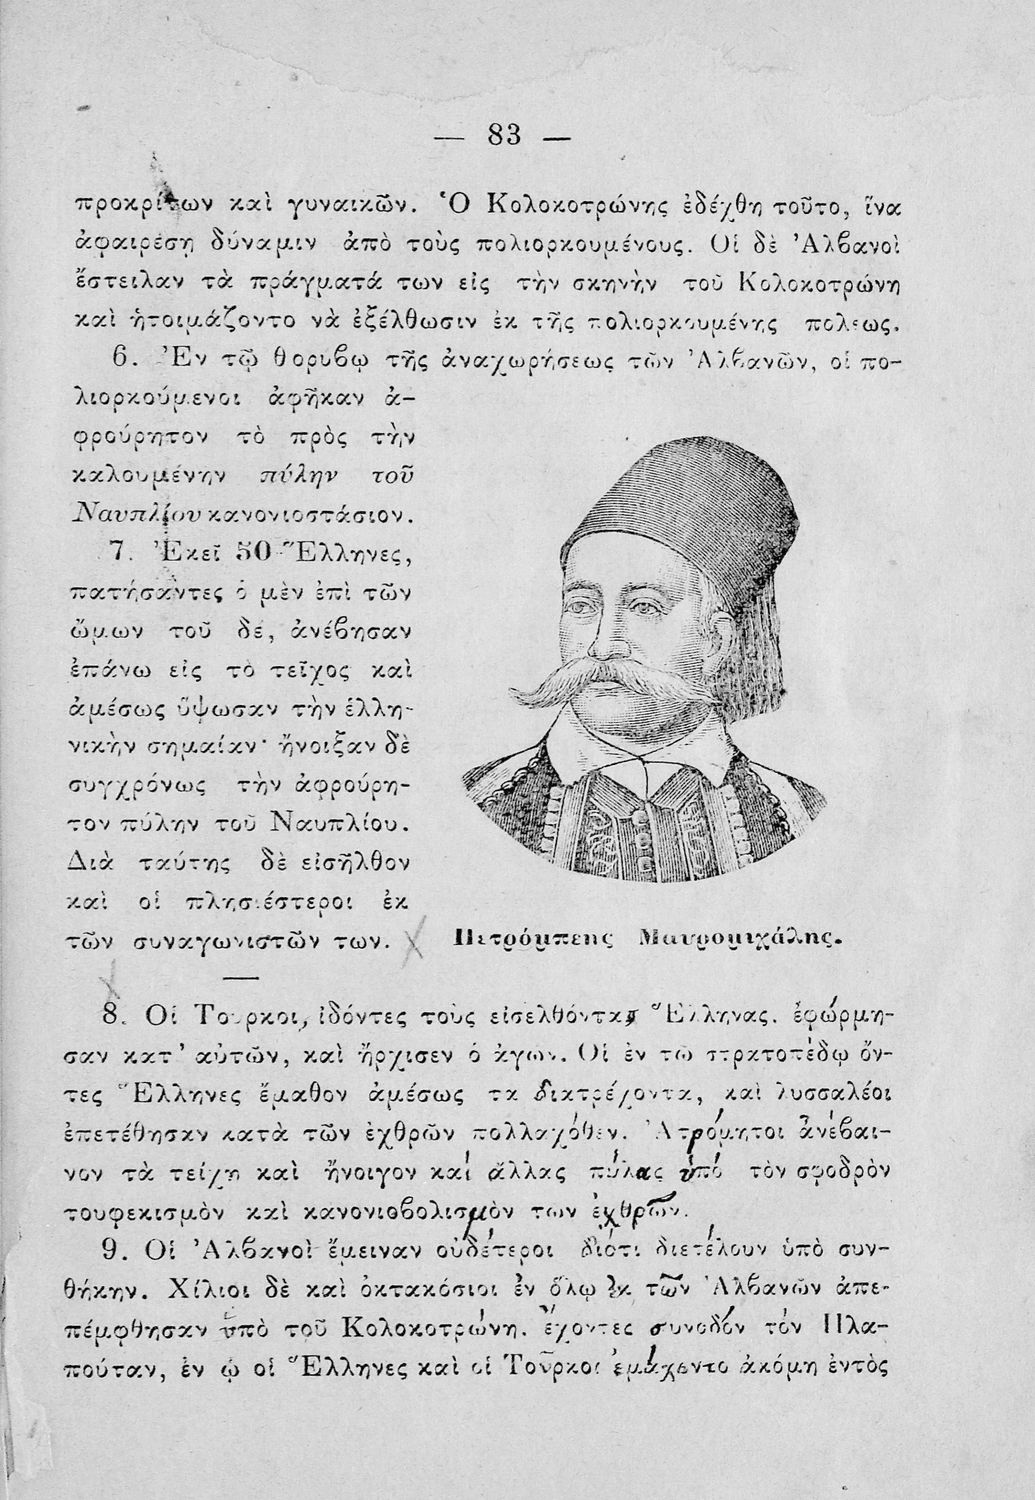 — 83 —
προκρίτων καὶ γυναικῶν. Ὁ Κολοκοτρώνης ἐδέχθη τοῦτο, ἵνα
ἀφαιρέση δύναμιν ἀπὸ τοὺς πολιορκουμένους. Οἱ δὲ Ἀλβανοὶ
ἔστειλαν τὰ πράγματά των εἰς τὴν σκηνὴν τοῦ Κολοκοτρώνη
καὶ ἡτοιμάζοντο νὰ ἐξέλθωσιν ἐκ τῆς πολιορκουμένης πολεως.
6. Ἐν τῷ θορυβῳ τῆς ἀναχωρήσεως τῶν Ἀλβανῶν, οἱ πο-
λιορκούμενοι ἀφῆκαν ἀ-
φρούρητον τὸ πρὸς τὴν
καλουμένην πύλην τοῦ
Ναυπλίου κανονιοστάσιον.
7. Ἐκεῖ 50 Ἕλληνες,
πατήσαντες ὁ μὲν ἐπὶ τῶν
ὤμων τοῦ δὲ, ἀνέβησαν
ἐπάνω εἰς τὸ τεῖχος καὶ
ἀμέσως ὕψωσαν τὴν ἑλλη-
νικὴν σημαίαν· ἤνοιξαν δὲ
συγχρόνως τὴν ἀφρούρη-
τον πύλην τοῦ Ναυπλίου.
Διὰ ταύτης δὲ εἰσῆλθον
καὶ οἱ πλησιέστεροι ἐκ
τῶν συναγωνιστῶν των.
Πετρόμπεης Μαυρομιχάλης.
8. Οἱ Τοῦρκοι, ἰδόντες τοὺς εἰσελθόντας Ἕλληνας. ἐφώρμη-
σαν κατ' αὐτῶν, καὶ ἤρχισεν ὁ ἀγων. Οἱ ἐν τῶ στρατοπέδῳ ὄν-
τες Ἕλληνες ἔμαθον ἀμέσως τα διατρέχοντα, καὶ λυσσαλέοι
ἐπετέθησαν κατὰ τῶν ἐχθρῶν πολλαχόθεν. Ἀτρόμητοι ἀνέβαι-
νον τὰ τείχη καὶ ἤνοιγον καὶ ἄλλας πύλας ὑπό τὸν σφοδρὸν
τουφεκισμὸν καὶ κανονιοβολισμὸν των ἐχθρῶν.
9. Οἱ Ἀλβανοὶ ἔμειναν οὐδέτεροι διότι διετέλουν ὑπὸ συν-
θήκην. Χίλιοι δὲ καὶ ὀκτακόσιοι ἐν ὅλῳ ἐκ τῶν Ἀλβανῶν ἀπε-
πέμφθησαν ὑπὸ τοῦ Κολοκοτρώνη. ἔχοντες συνοδόν τὸν Πλα-
πούταν, ἐν ᾧ οἱ Ἕλληνες καὶ οἱ Τοῦρκοι ἐμάχοντο ἀκόμη ἐντὸς